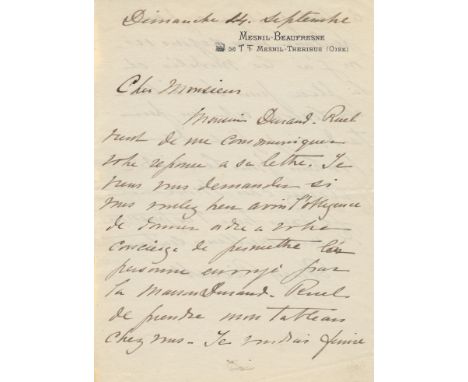 Dimanche 14. Septembre
MESNIL-BEAUFRESNE
MESNIL-THERIBUS (OISE)
Cher Monsieur
Monsieur Durand-Ruel
vient de me communiquer
votre reponse a sa lettre. Je
viens vous demander si
vous voulez bien avoir l'obligence
de donner ordre a votre
concierge de permettre la
personne envoyé par
la Maison Durand-Ruel
de prendre mon tableau
chez vous - Je voudrais